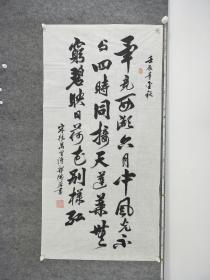 壬辰年金秋
畢竟西湖六月中風光不
与四時同接天蓮葉無
窮碧映日荷花別樣紅
宋楊萬里詩 書